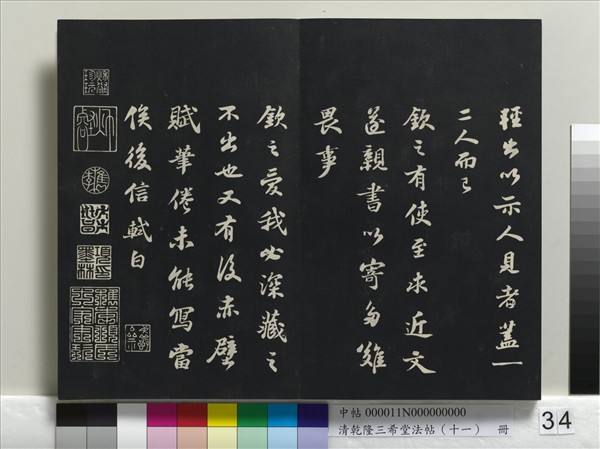 輕出以示人見者蓋一
二人而已
欽之有使至求近文
遂親書以寄多難
畏事
欽之愛我必深藏之
不出也又有後赤壁
賦筆倦未能寫當
俟後信軾白
中帖 000011N000000000
清乾隆三希堂法帖（十一） 冊
34